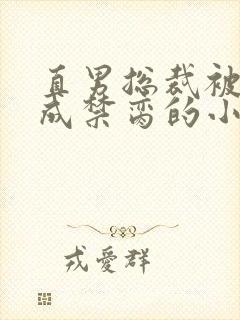 直男总裁被
成禁脔的小
戎爱群